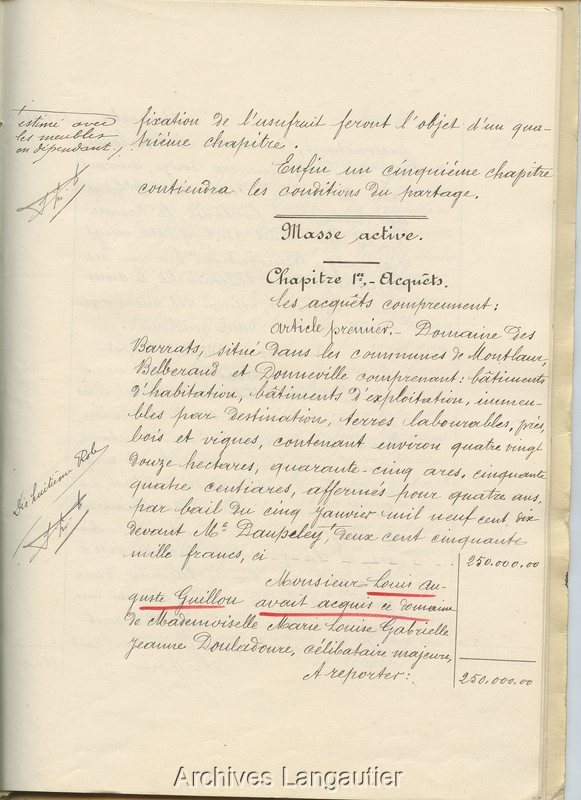 estimé avec
les meubles
en dépendant,
fixation de l'usufruit feront l'objet d'un qua-
trième chapitre.
Enfin un cinquième chapitre
contiendra les conditions du partage.
Masse active.
Chapitre 1er,- Acquêts.
Les acquêts comprennent:
Article premier.- Domaine des
Barrats, situé dans les communes de Montlaur,
Belberaud et Donneville comprenant: bâtiments
d'habitation, bâtiments d'exploitation, immeu-
bles par destination, terres labourables, prés,
bois et vignes, contenant environ quatre vingt
douze hectares, quarante-cinq ares, cinquante
quatre centiares, affermés pour quatre ans,
par bail du cinq janvier mil neuf cent dix
devant Me Daupeley, deux cent cinquante
mille francs, ci 250.000.00
Dix huitième Rôle
Monsieur Louis Au-
guste Guillou avait acquis ce domaine
de Mademoiselle Marie Louise Gabrielle
Jeanne Douladoure, célibataire majeure,
A reporter: 250.000.00
Archives Langautier